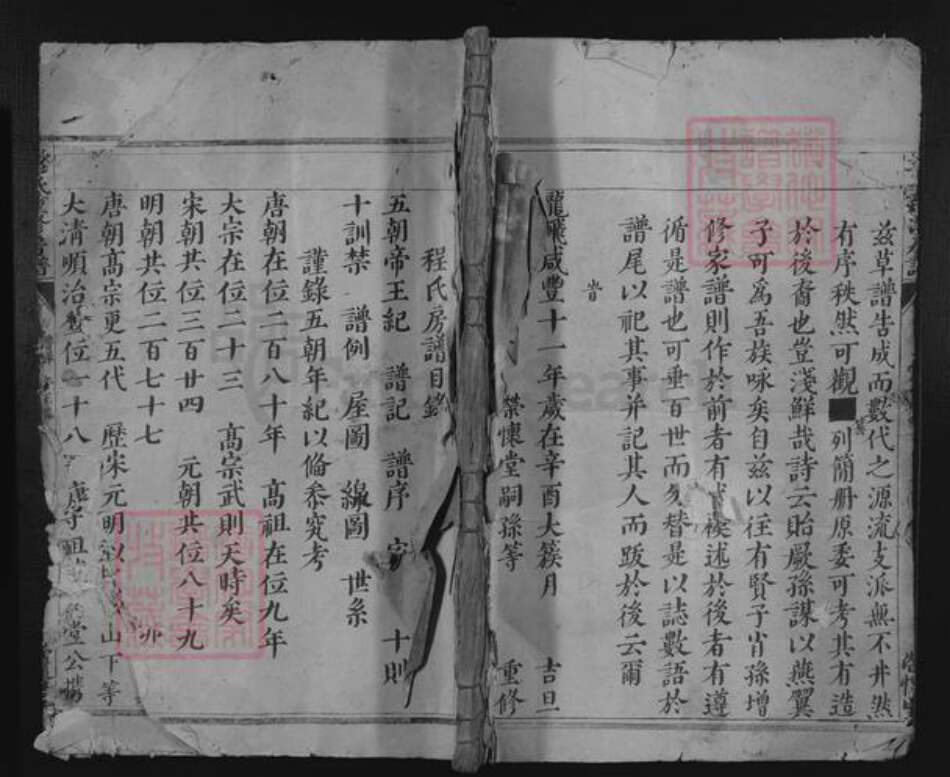 茲草譜告成而數代之源流支派無不井然
有序秩然可觀 列簡册原委可考其有造
於後裔也豈淺鮮哉詩云貽厥孫謀以燕翼
子可為吾族咏矣自茲以徃有賢子肖孫增
修家譜則作於前者有 述於後者有遵
循是譜也可垂百世而勿替是以誌數語於
譜尾以祀其事并記其人而跋於後云爾
旹
龍飛咸豐十一年歲在辛酉大簇月 吉旦
懷堂嗣孫等 重修
程氏房譜目錄
五朝帝王紀 譜記 譜序 家 十則
十訓禁 譜例 屋圖 線圖 世系
謹錄五朝年紀以俻叅究考
唐朝在位二百八十年 高祖在位九年
大宗在位二十三 高宗武則天時矣
宋朝共位三百廿四 元朝共位八十九
明朝共位二百七十七
唐朝高宗更五代 歷宋元明 山下等
大清順治 位一十八 堂公携